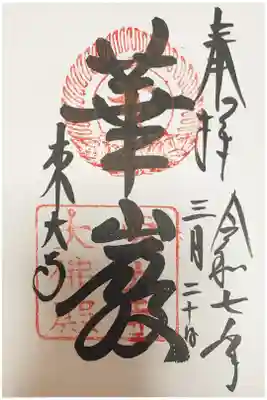 奉拝
令和七年
三月二十日
華嚴
東大寺